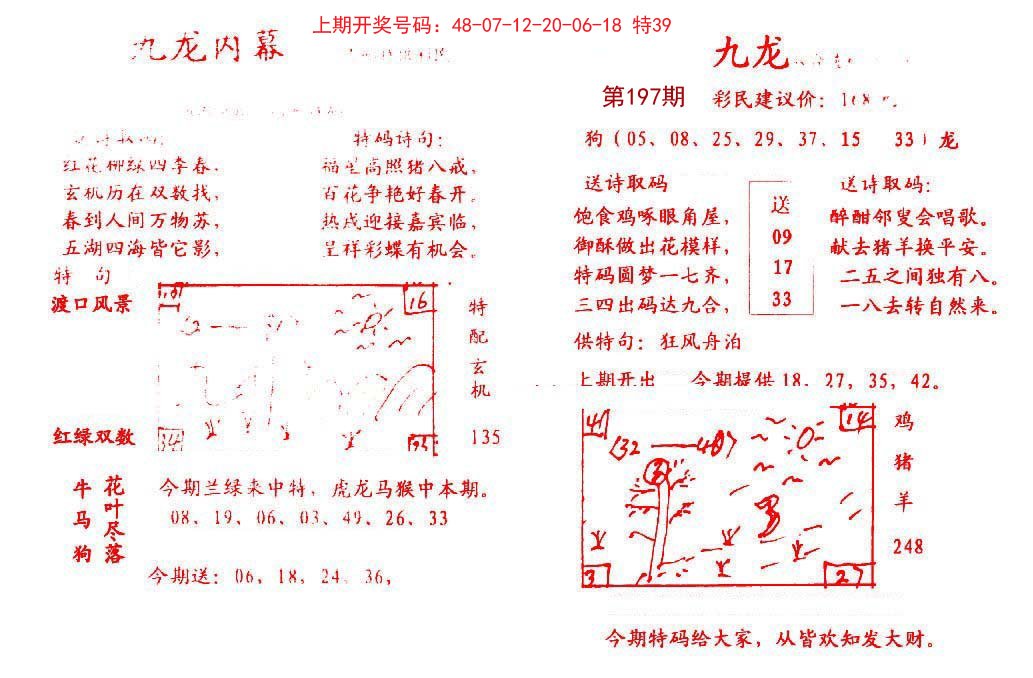 上期开奖号码：48-07-12-20-06-18 特39
九龙内幕
特码诗句：
红花柳绿四季春，
玄机历在双数找，
春到人间万物苏，
五湖四海皆它影，
福星高照猪八戒，
百花争艳好春开。
热戌迎接嘉宾临，
呈祥彩蝶有机会。
特 句
渡口风景
16
特配玄机
135
红绿双数
牛马狗
花叶尽落
今期兰绿来中特，虎龙马猴中本期。
08、19、06、03、49、26、33
今期送：06，18，24、36，
九龙
第197期
彩民建议价：
狗（05、08、25、29、37、15 33）龙
送诗取码
饱食鸡啄眼角屋，
御酥做出花模样，
特码圆梦一七齐，
三四出码达九合，
送
09
17
33
送诗取码：
醉酣邻叟会唱歌。
献去猪羊换平安。
二五之间独有八。
一八去转自然来。
供特句：狂风舟泊
上期开出 今期提供 18、27，35，42。
41
14
32
27
鸡猪羊
248
今期特码给大家，从皆欢知发大财。